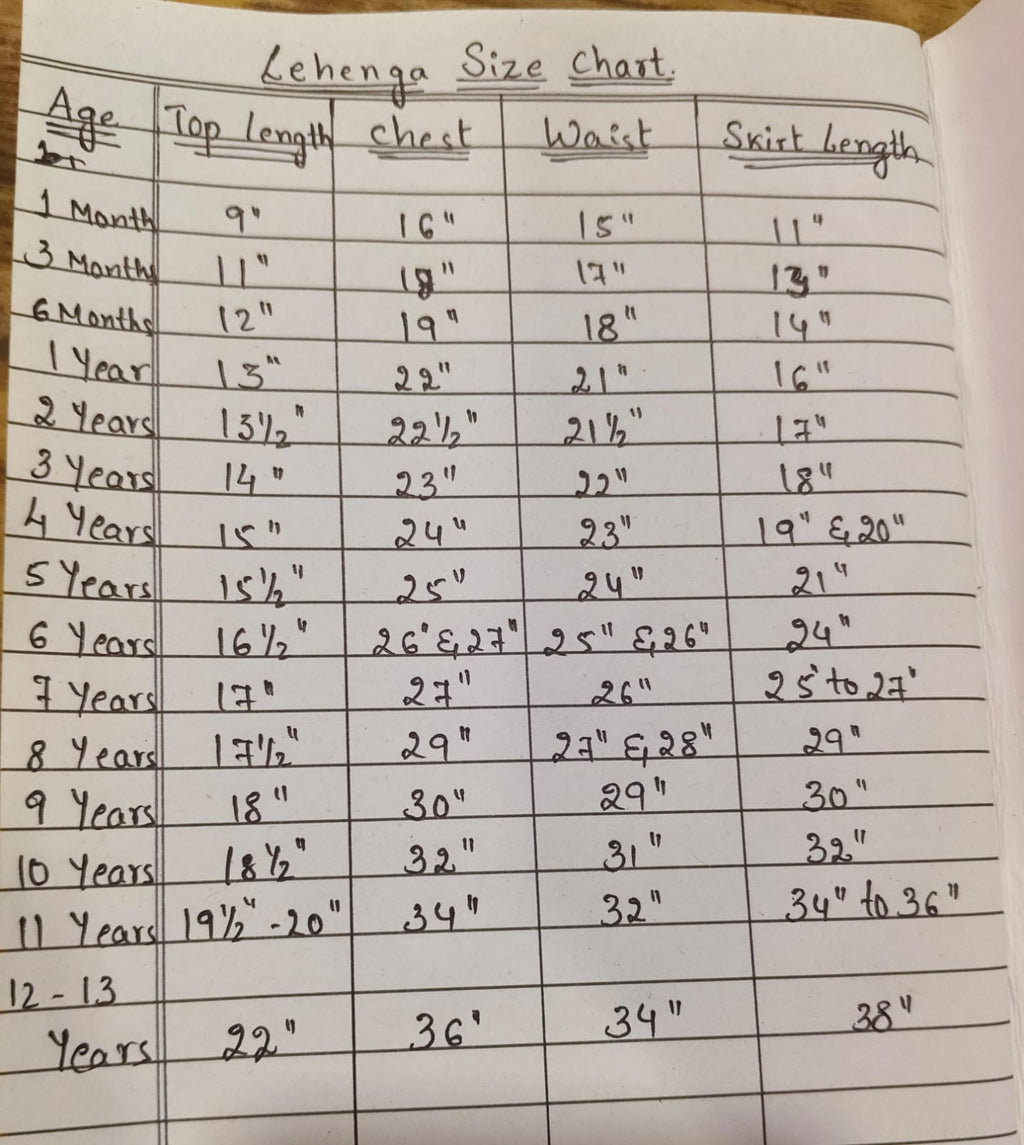 Lehenga Size Chart.
Age Top Length Chest Waist Skirt Length
1 Month 9" 16" 15" 11"
3 Months 11" 18" 17" 13"
6 Months 12" 19" 18" 14"
1 Year 13" 22" 21" 16"
2 Years 13½" 22½" 21½" 17"
3 Years 14" 23" 22" 18"
4 Years 15" 24" 23" 19" & 20"
5 Years 15½" 25" 24" 21"
6 Years 16½" 26" & 27" 25" & 26" 24"
7 Years 17" 27" 26" 25" to 27"
8 Years 17½" 29" 27" & 28" 29"
9 Years 18" 30" 29" 30"
10 Years 18½" 32" 31" 32"
11 Years 19½" - 20" 34" 32" 34" to 36"
12 - 13
Years 22" 36" 34" 38"